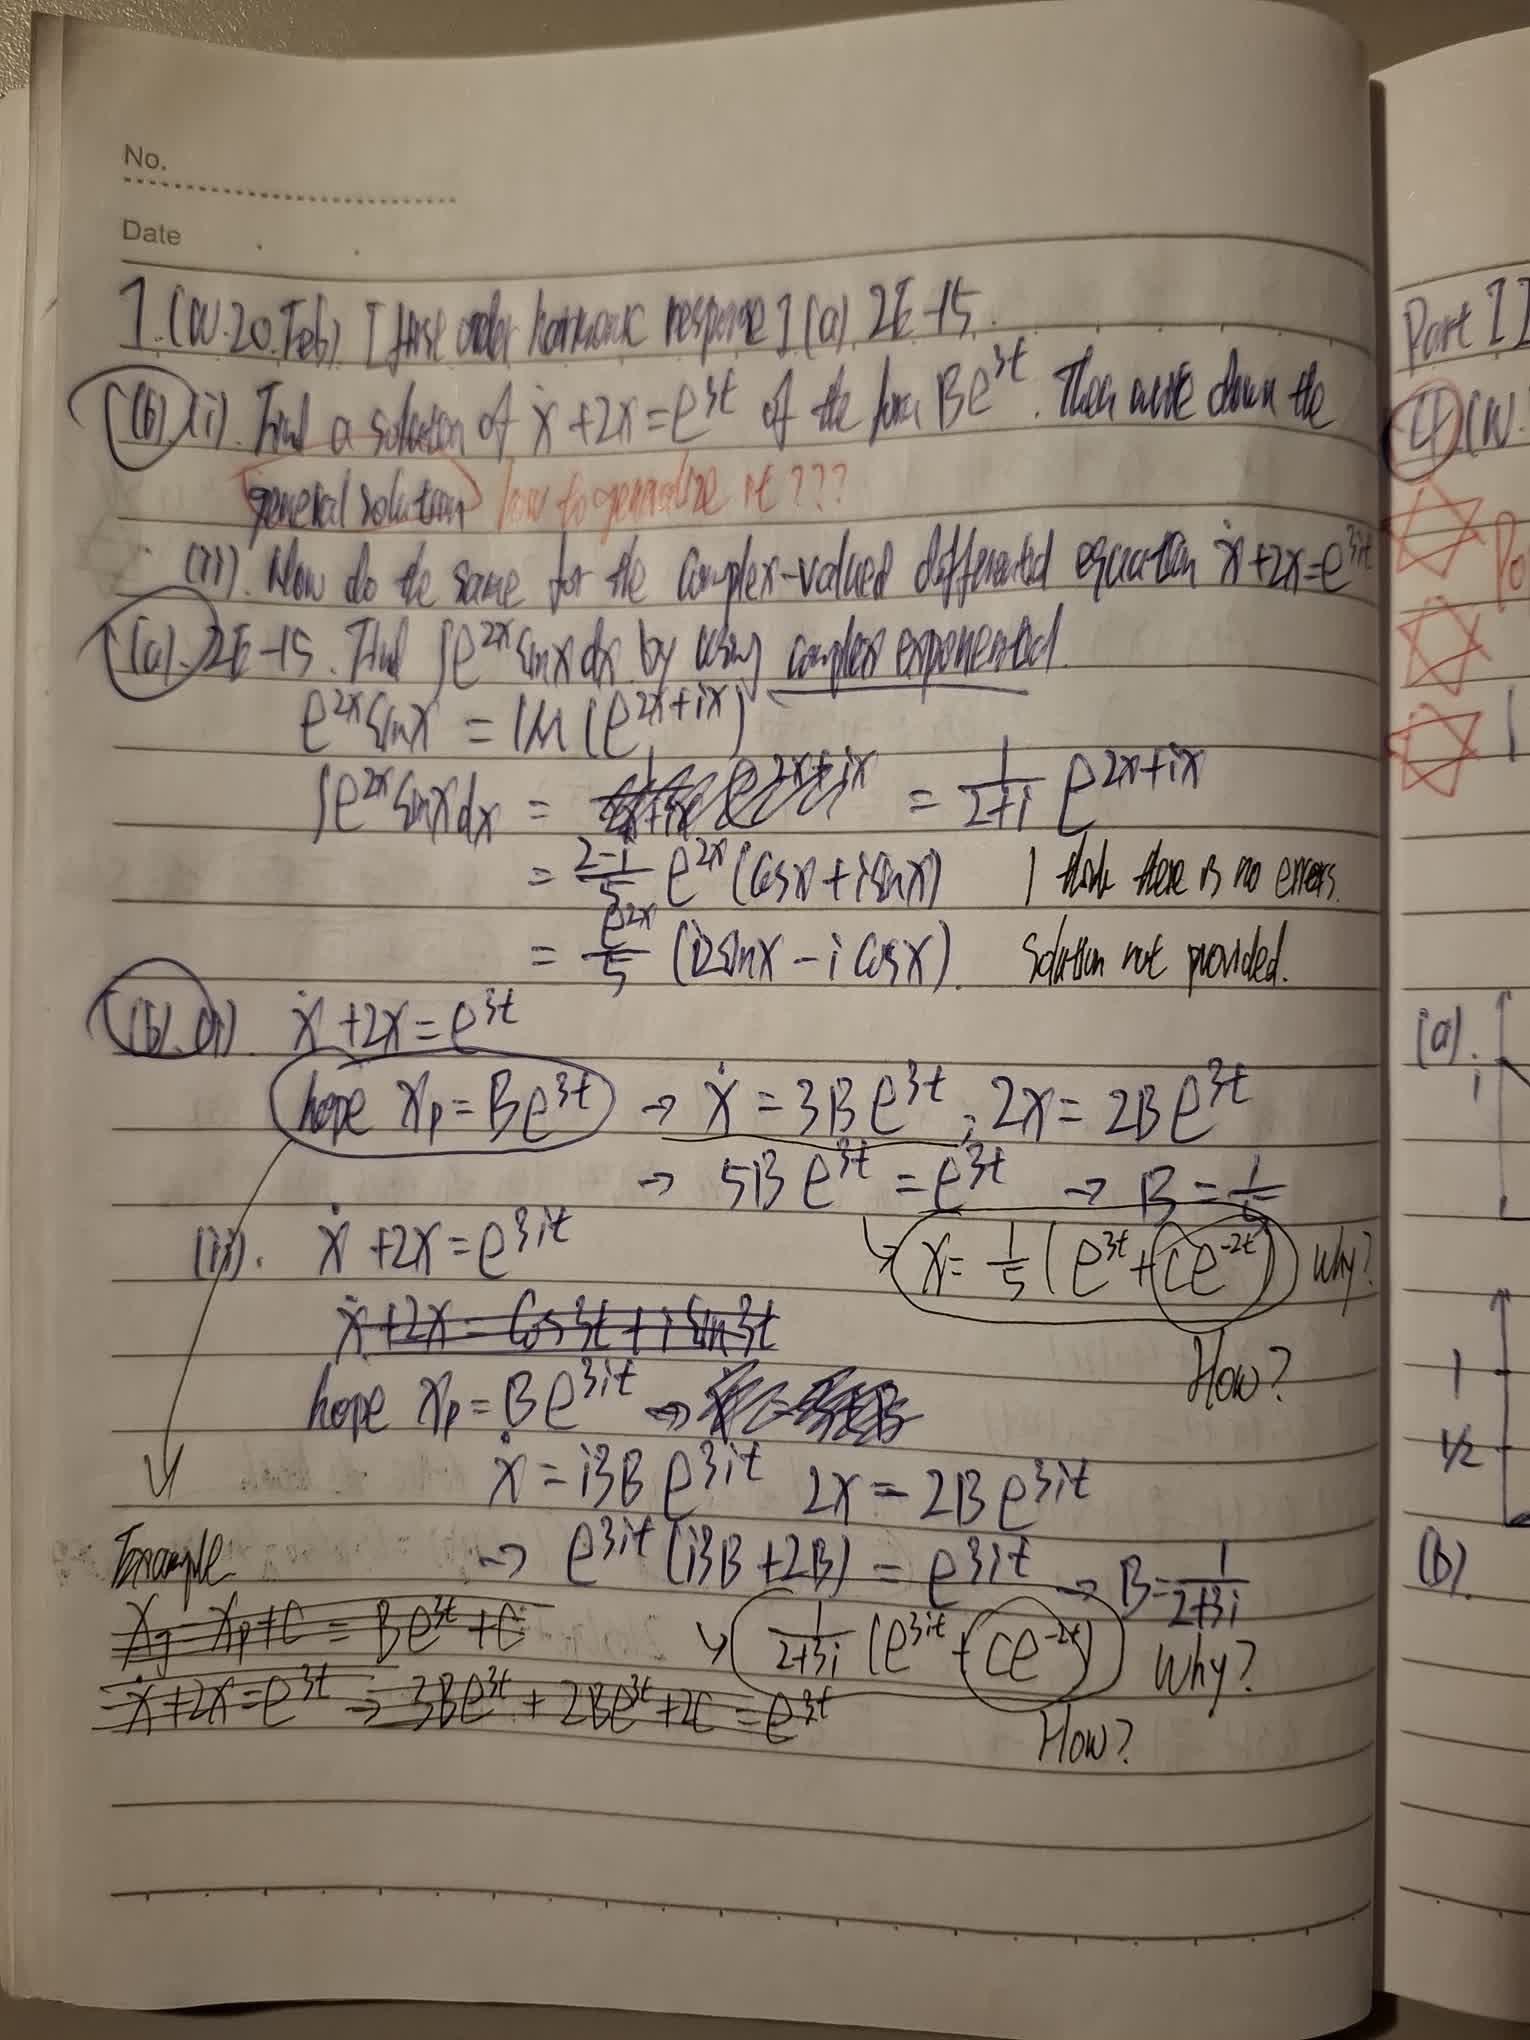 No.
Date
1. (W. 20. Feb) [first order harmonic response] (a). 2E-15.
(b) (i). Find a solution of ẋ + 2x = e^{3t} of the form Be^{3t}. Then write down the
general solution how to generalize it ???
(ii). Now do the same for the complex-valued differential equation ẋ + 2x = e^{3it}
(a). 2E-15. Find ∫e^{2x} sinx dx by using complex exponential.
e^{2x} sinx = IM (e^{2x+ix})
∫e^{2x} sinx dx = = 1/(2+i) e^{2x+ix}
= (2-i)/5 e^{2x} (cosx + i sinx) I think there is no errors.
= e^{2x}/5 (i2sinx - i cosx). Solution not provided.
(b). (i). ẋ + 2x = e^{3t}
hope x_p = Be^{3t} → ẋ = 3Be^{3t} ; 2x = 2Be^{3t}
→ 5Be^{3t} = e^{3t} → B = 1/5
↳ x = 1/5 (e^{3t} + ce^{-2t}) Why?
How?
(ii). ẋ + 2x = e^{3it}
ẋ + 2x = Cos3t + i Sin3t
hope x_p = Be^{3it} →
ẋ = i3Be^{3it} 2x = 2Be^{3it}
→ e^{3it} (i3B + 2B) = e^{3it} → B = 1/(2+3i)
↳ 1/(2+3i) (e^{3it} + ce^{-2t}) Why?
How?
Example
x_g = x_p + C = Be^{3t} + C
ẋ + 2x = e^{3t} → 3Be^{3t} + 2Be^{3t} + 2C = e^{3t}
Part II
4. (W.
Po
(a).
1
1
1/2
(b).